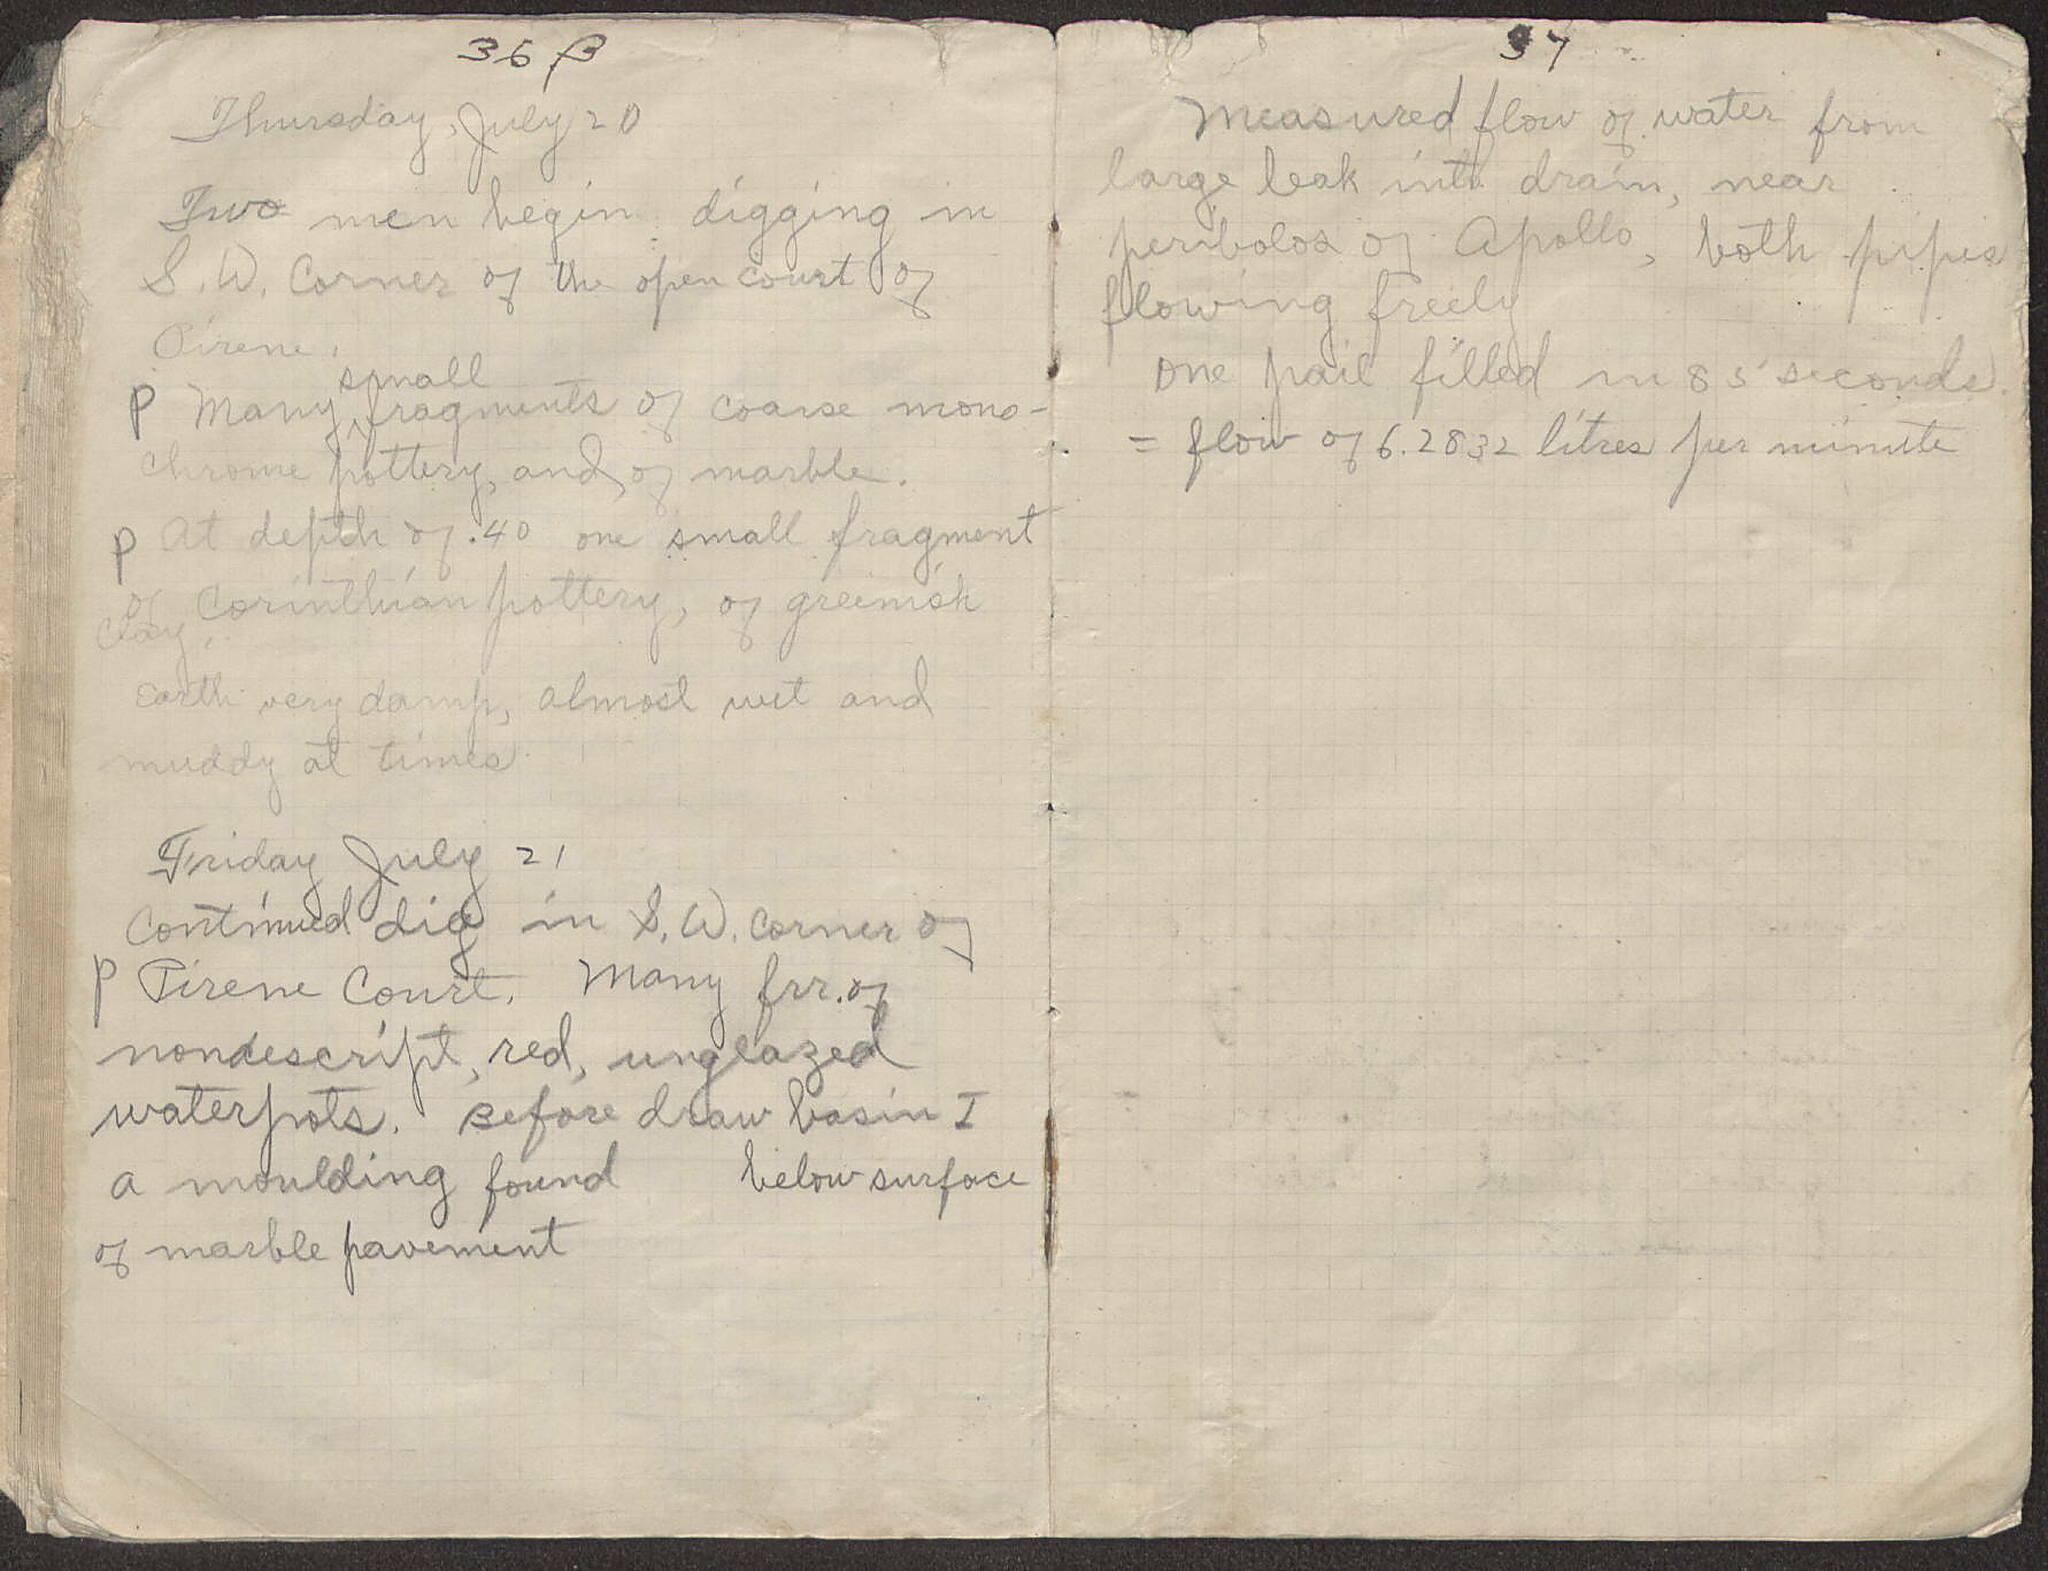 36 β
Thursday, July 20
Two men begin digging in
S. W. Corner of the open court of
Pirene.
small
P Many fragments of coarse mono-
chrome pottery, and of marble.
P At depth of .40 one small fragment
of Corinthian pottery, of greenish
clay.
Earth very damp, almost wet and
muddy at times.
Friday July 21
Continued dig in S. W. Corner of
P Pirene Court. Many frr. of
nondescript, red, unglazed
waterpots. Before draw basin I
a moulding found below surface
of marble pavement
37
Measured flow of water from
large leak into drain, near
peribolos of Apollo, both pipes
flowing freely
One pail filled in 85 seconds.
= flow of 6.2832 litres per minute